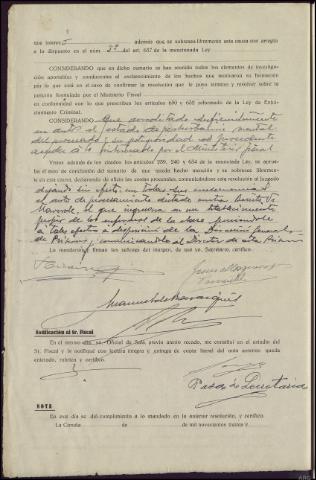 que
además que se sobresea libremente esta causa con arreglo
a lo dispuesto en el núm. 3º del art. 637 de la mencionada Ley.
CONSIDERANDO que en dicho sumario se han reunido todos los elementos de investiga-
ción aportables y conducentes al esclarecimiento de los hechos que motivaron su formación
por lo que está en el caso de confirmar la resolución que lo puso término y resolver sobre la
petición formulada por el Ministerio Fiscal
en conformidad con lo que prescriben los artículos 630 y 632 reformado de la Ley de Enjui-
ciamiento Criminal.
CONSIDERANDO Que acreditado suficientemente
en autos el estado de perturbación mental
del procesado y su peligrosidad es procedente
acceder a lo pretendido por el Ministerio fiscal
Vistos además de los citados los artículos 239, 240 y 634 de la mencionada Ley, se aprue-
ba el auto de conclusión del sumario de que queda hecho mención y se sobresee libremen-
te en esta causa, declarando de oficio las costas procesales, comuníquese esta resolución al Juzgado
dejando sin efecto en todas sus
el auto de procesamiento dictado contra
el que ingresará en un establecimiento
de los enfermos de su clase poniéndole
a tales efectos a disposición de la Dirección general
de Prisiones y comunicándolo al Director de esta Prisión
Lo mandaron y firman los señores del margen, de que yo, Secretario, certifico.
Notificación al Sr. Fiscal
En el mismo día, yo, Oficial de Sala, previo atento recado, me constituí en el estudio del
Sr. Fiscal y le notifiqué con lectura íntegra y entrega de copia literal del auto anterior; queda
enterado, rubrica y certifico.
Pasa a Secretaría
NOTA
En este día se dió cumplimiento a lo mandado en la anterior resolución, y certifico.
La Coruña de de mil novecientos treinta y